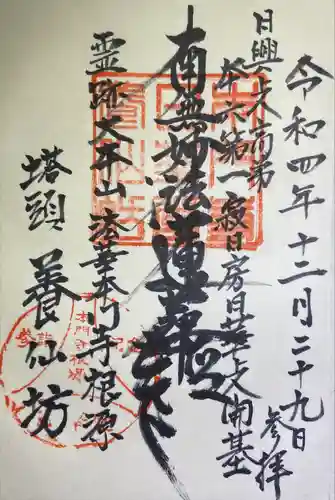 令和四年十二月二十九日
参拝
日興上人高弟
本六第一寂日房日華上人開基
南無妙法蓮華経
霊跡大本山 法華本門寺根源
塔頭 養仙坊